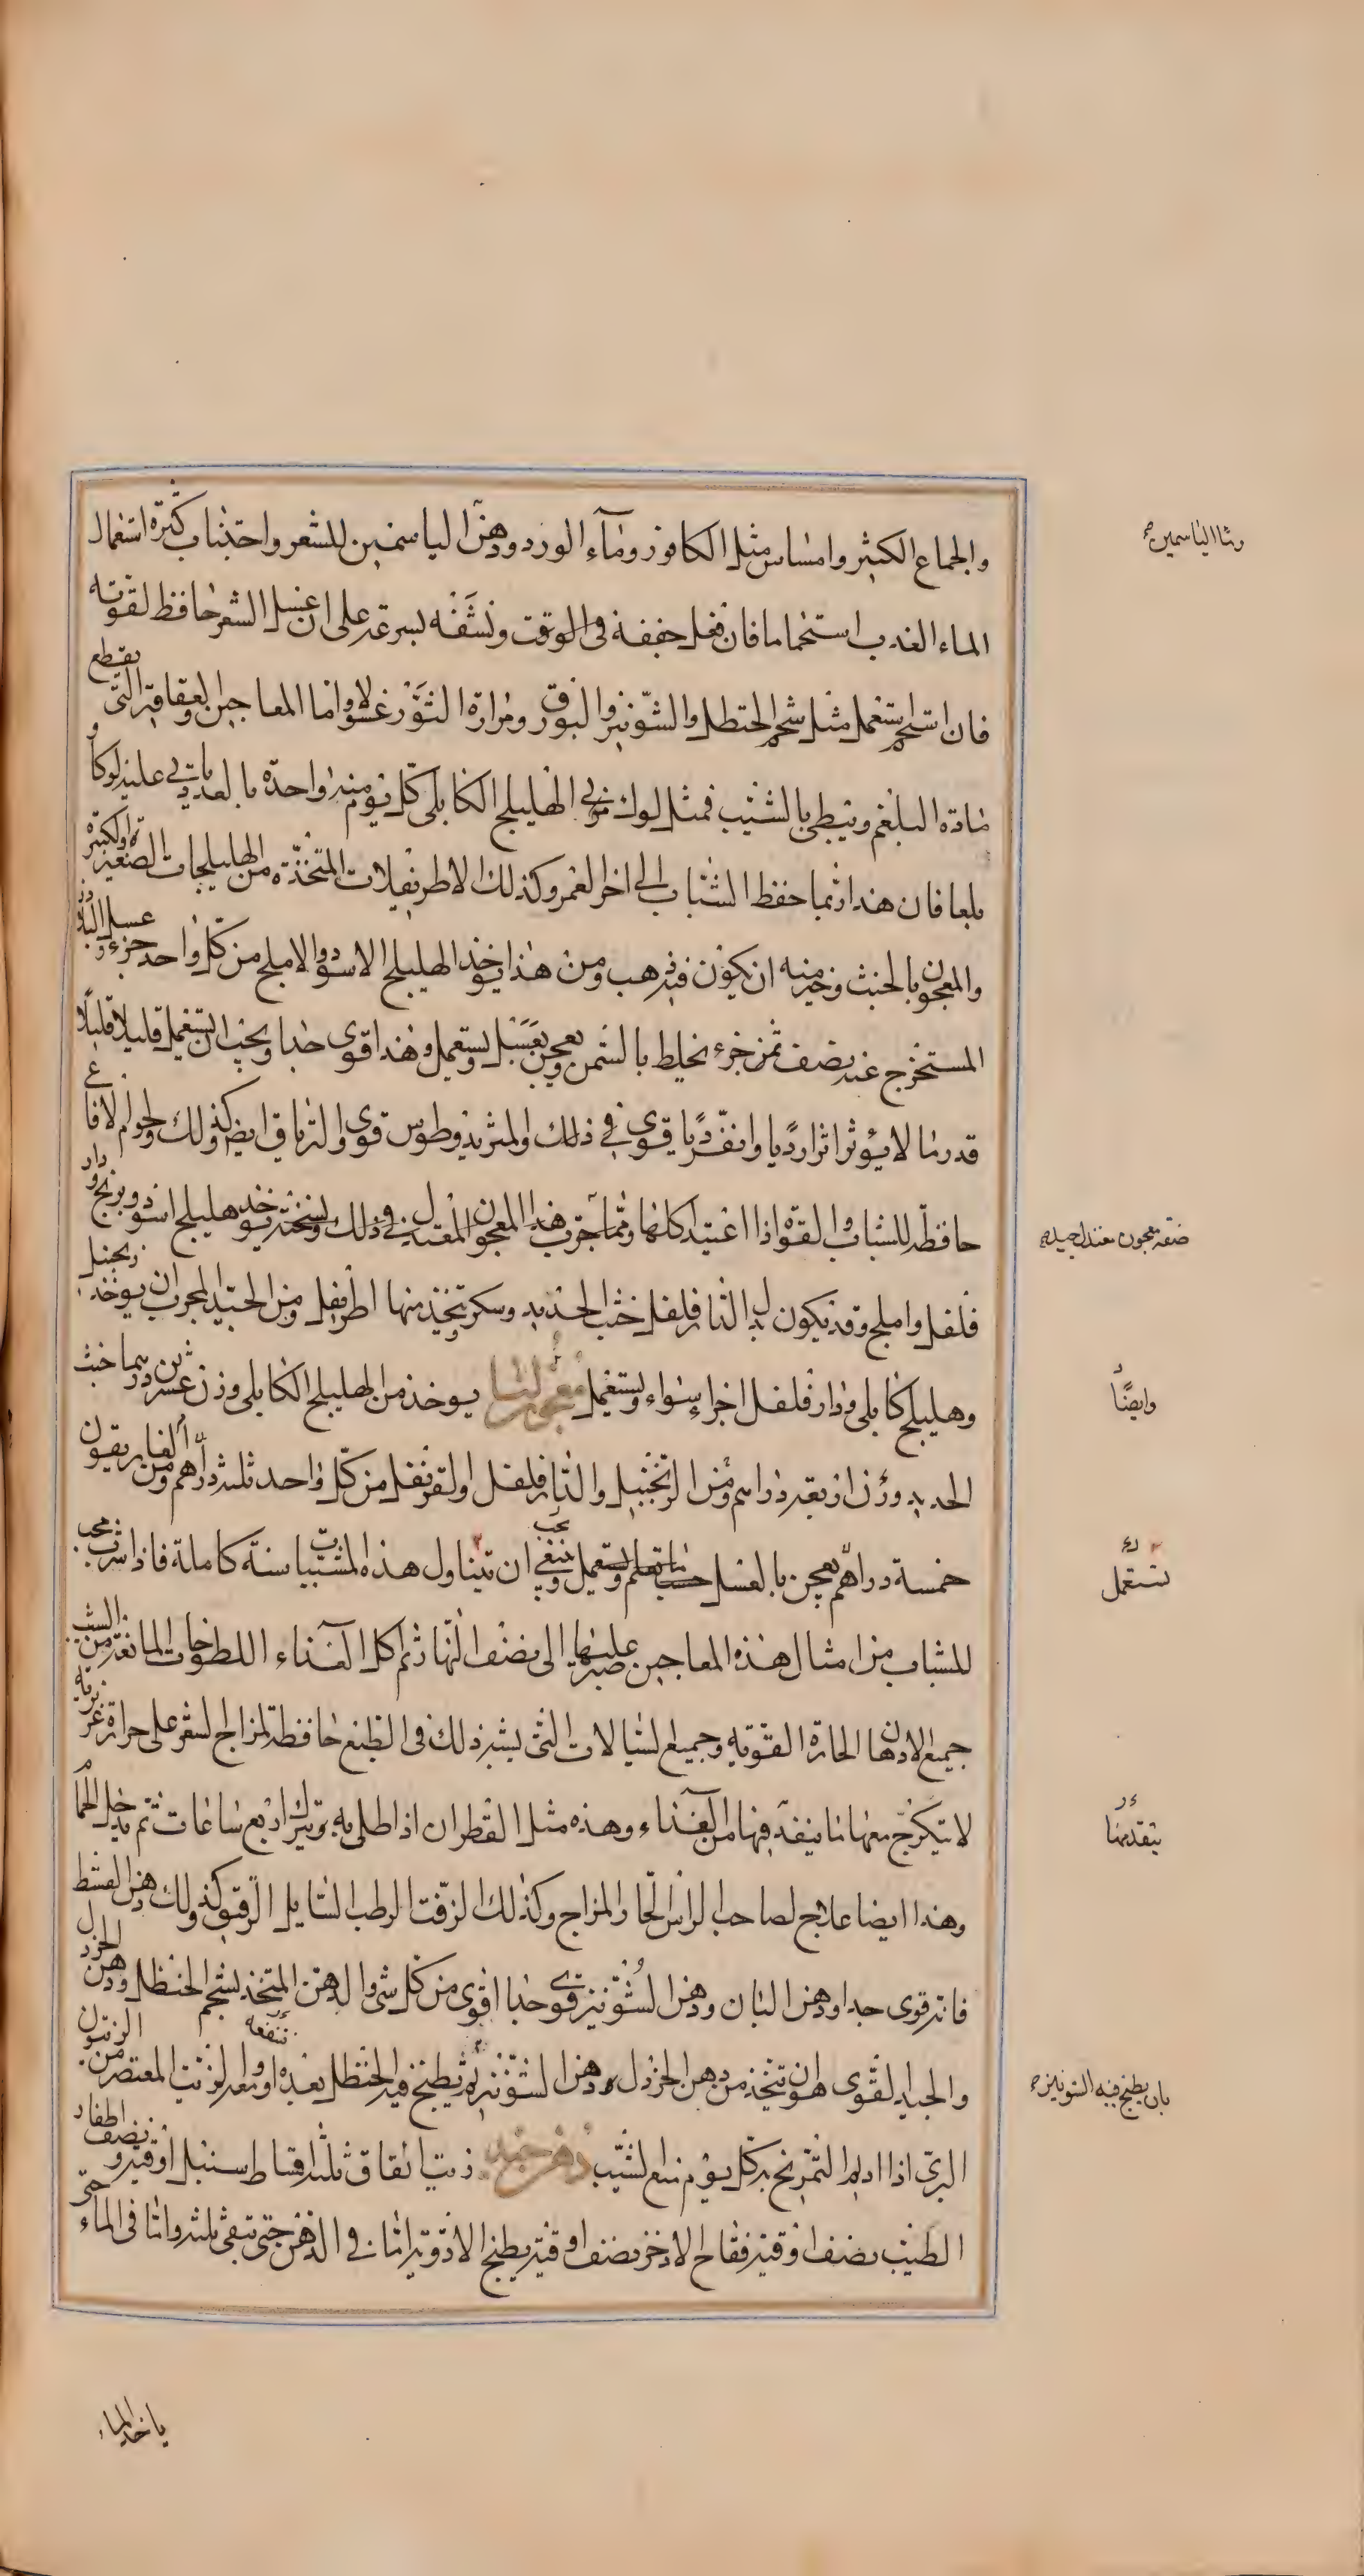 والجماع الكثير وامساس مثل الكافور وماء الورد ودهن الياسمين للشعر واجتناب كثرة استعمال
وماء الياسمين
الماء العذب استحماما فان فعل جففه في الوقت ونشفه بسرعة على ان غسل الشعر حافظ لقوته
فان استحم يستعمل مثل شحم الحنظل والشونيز والبورق ومرارة الثور غسولا واما المعاجين والعقاقير التي يقطع
مادة البلغم ويبطي بالشيب فمثل لوك مربى الهليلج الكابلي كل يوم منه واحدة يأتي عليه لوكا و
بلعا فان هذا ربما حفظ الشباب الى اخر العمر وكذلك الاطريفلات المتخذة من الهليلجات الصغيرة والكبيرة
والمعجون بالخبث وخيره منه ان يكون فيه ذهب ومن هذا يوخذ الهليلج الاسود والاملج من كل واحد جزء وعسل البلاذر
المستخرج عنه نصف ثمن جزء يخلط بالسمن ويعجن بعسل ويستعمل وهذا قوي جدا ويجب ان يستعمل قليلا قليلا
قدر ما لا يؤثر اثرا رديا وانقرديا قوي في ذلك والمثريديطوس قوي والترياق ايضا كذلك ولحوم الافاعي
حافظة للشباب والقوة اذا اعتيد اكلها ومما جرب هذا المعجون المعتدل في ذلك ونسخته يوخذ هليلج اسود وبرنج ودار
صفة معجون معتدل جيد
فلفل واملج وقد يكون بدل الدار فلفل خبث الحديد وسكر يتخذ منها اطريفل ومن الجيد المجرب ان يوخذ زنجبيل
وهليلج كابلي ودار فلفل اجزاء سواء ويستعمل معجون لنا يوخذ من الهليلج الكابلي وزن عشرين درهما خبث
وايضا
الحديد وزن اربعة دراهم ومن الزنجبيل والدار فلفل والقرنفل من كل واحد ثلثة دراهم ومن الغاريقون
خمسة دراهم يعجن بالعسل ويستعمل وينبغي ان يتناول هذه المشبّبات سنة كاملة فاذا شرب محب
يستعمل
للشباب من امثال هذه المعاجين صبر عليها الى نصف النهار ثم اكل الغذاء اللطوخات المانعة من الشيب
جميع الادهان الحارة القوية وجميع السيالات التي يشبه ذلك في الطبع حافظة لمزاج البشرة على حرارة غريزية
لا يتكرج معها ما ينفذ فيها من الغذاء وهذه مثل القطران اذا طلي به ويترك اربع ساعات ثم يدخل الحمام
يتقدمها
وهذا ايضا علاج لصاحب الراس الحار المزاج وكذلك الزفت الرطب السايل الرقيق وكذلك دهن القسط
فانه قوي جدا ودهن البان ودهن الشونيز قوي جدا اقوى من كل شي والدهن المتخذ بشحم الحنظل ودهن الخردل
والجيد القوي هو ان يتخذ من دهن الخردل دهن الشونيز ثم يطبخ فيه الحنظل والزيت المعتصر من الزيتون
بان يطبخ فيه الشونيز
البري اذا اديم التمريخ به كل يوم منع الشيب دهن جيد زيت انفاق ثلثة اقساط سنبل اوقية ونصف اظفار
الطيب نصف اوقية فقاح الاذخر نصف اوقية يطبخ الادوية في الدهن حتى تبقى ثلثه واما في الماء حتى
ياخذ الماء